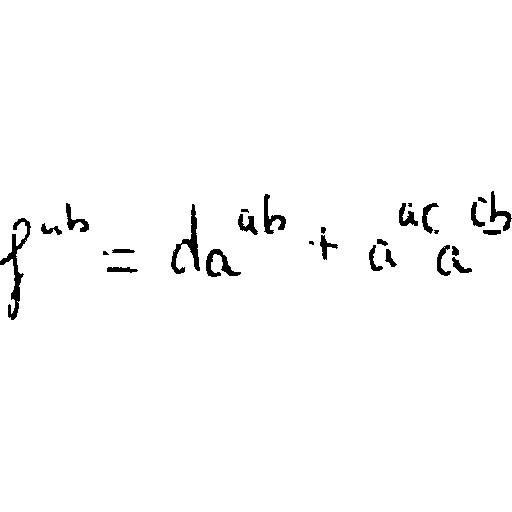 f^{ab} = da^{ab} + a^{ac} a^{cb}